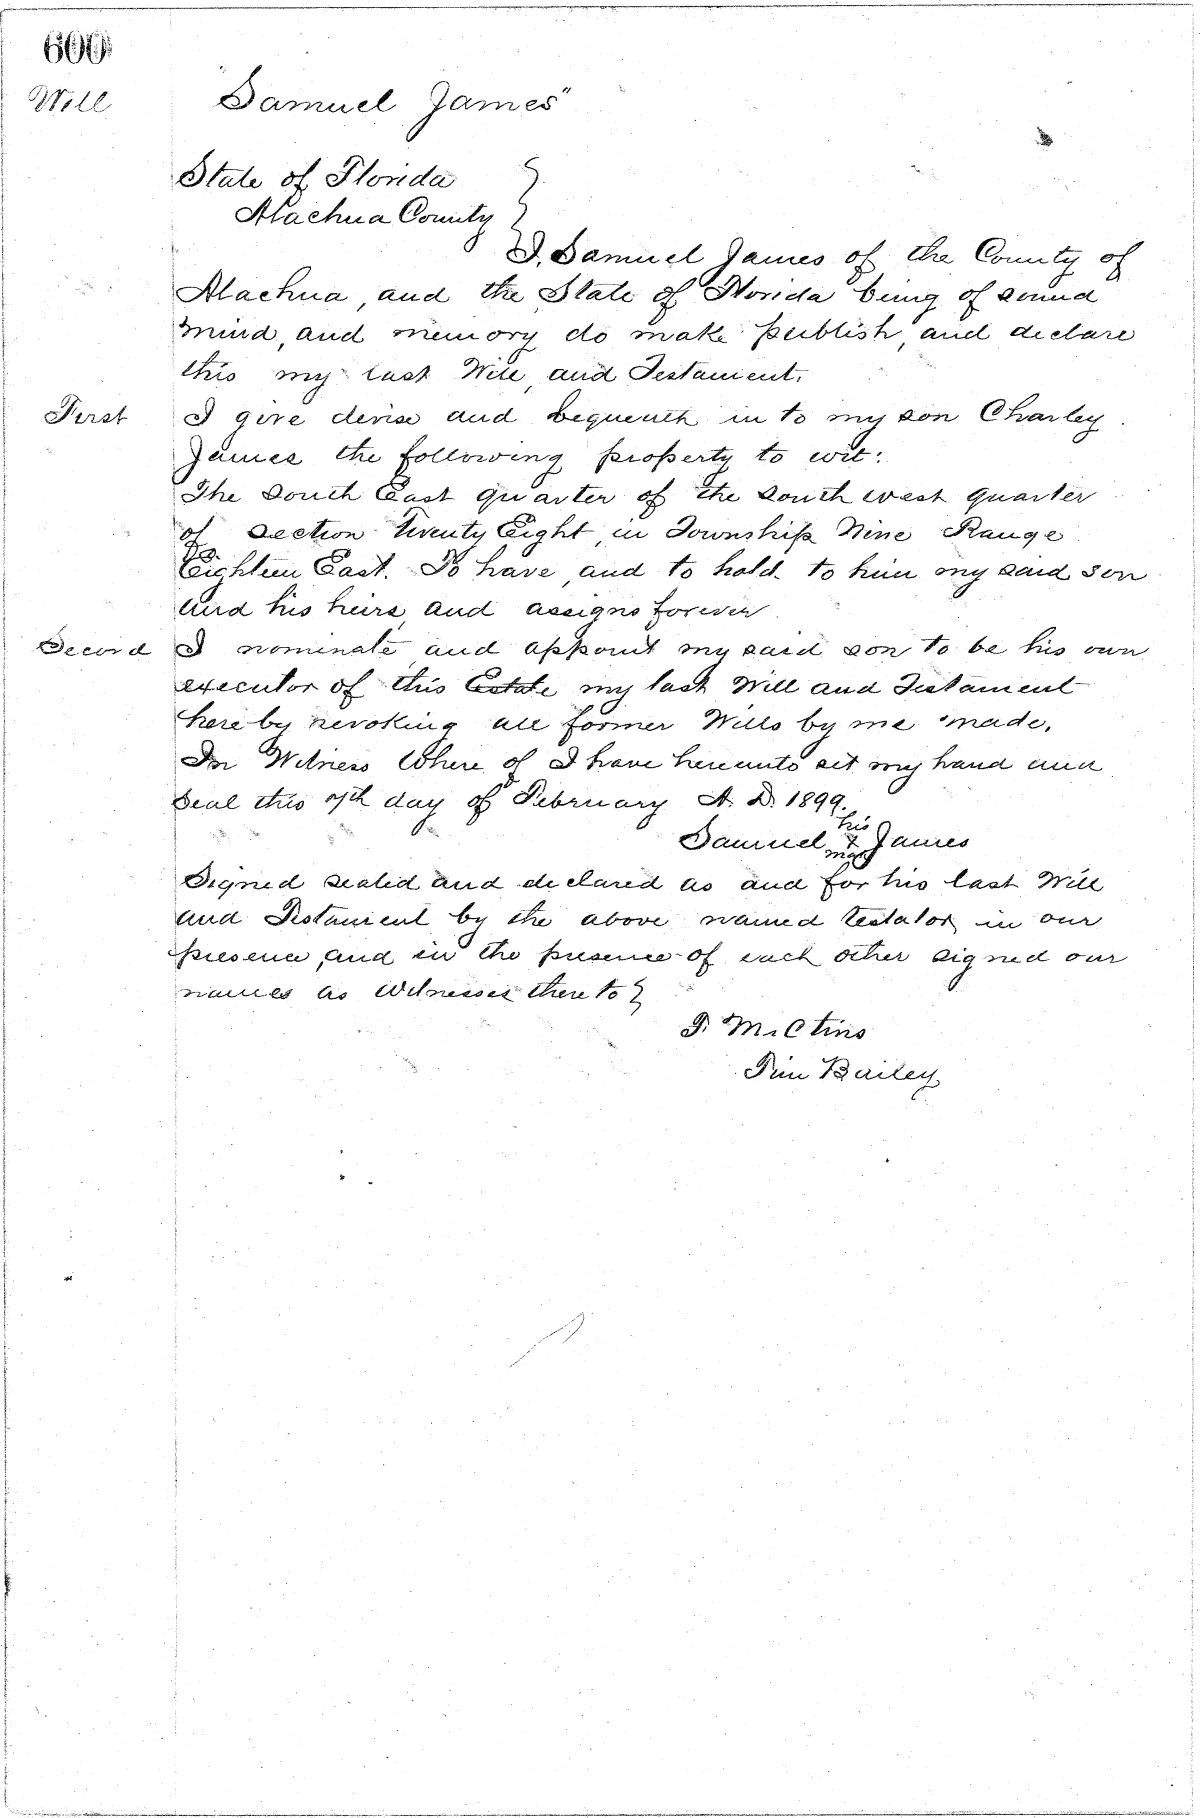 600
Will "Samuel James"
State of Florida }
Alachua County }
I, Samuel James of the County of
Alachua, and the State of Florida being of sound
mind, and memory do make publish, and declare
this my last Will, and Testament.
First I give devise and bequeath in to my son Charley
James the following property to wit:
The South East quarter of the South west quarter
of Section Twenty Eight, in Township Nine Range
Eighteen East. To have, and to hold to him my said son
and his heirs, and assigns forever
Second I nominate, and appoint my said son to be his own
executor of this Estate my last Will and Testament
here by revoking all former Wills by me made.
In Witness Where of I have hereunto set my hand and
Seal this 7th day of February A. D. 1899.
his
Samuel x James
mark
Signed sealed and declared as and for his last Will
and Testament by the above named testator in our
presence, and in the presence of each other signed our
names as Witnesses there to }
Tim Bailey